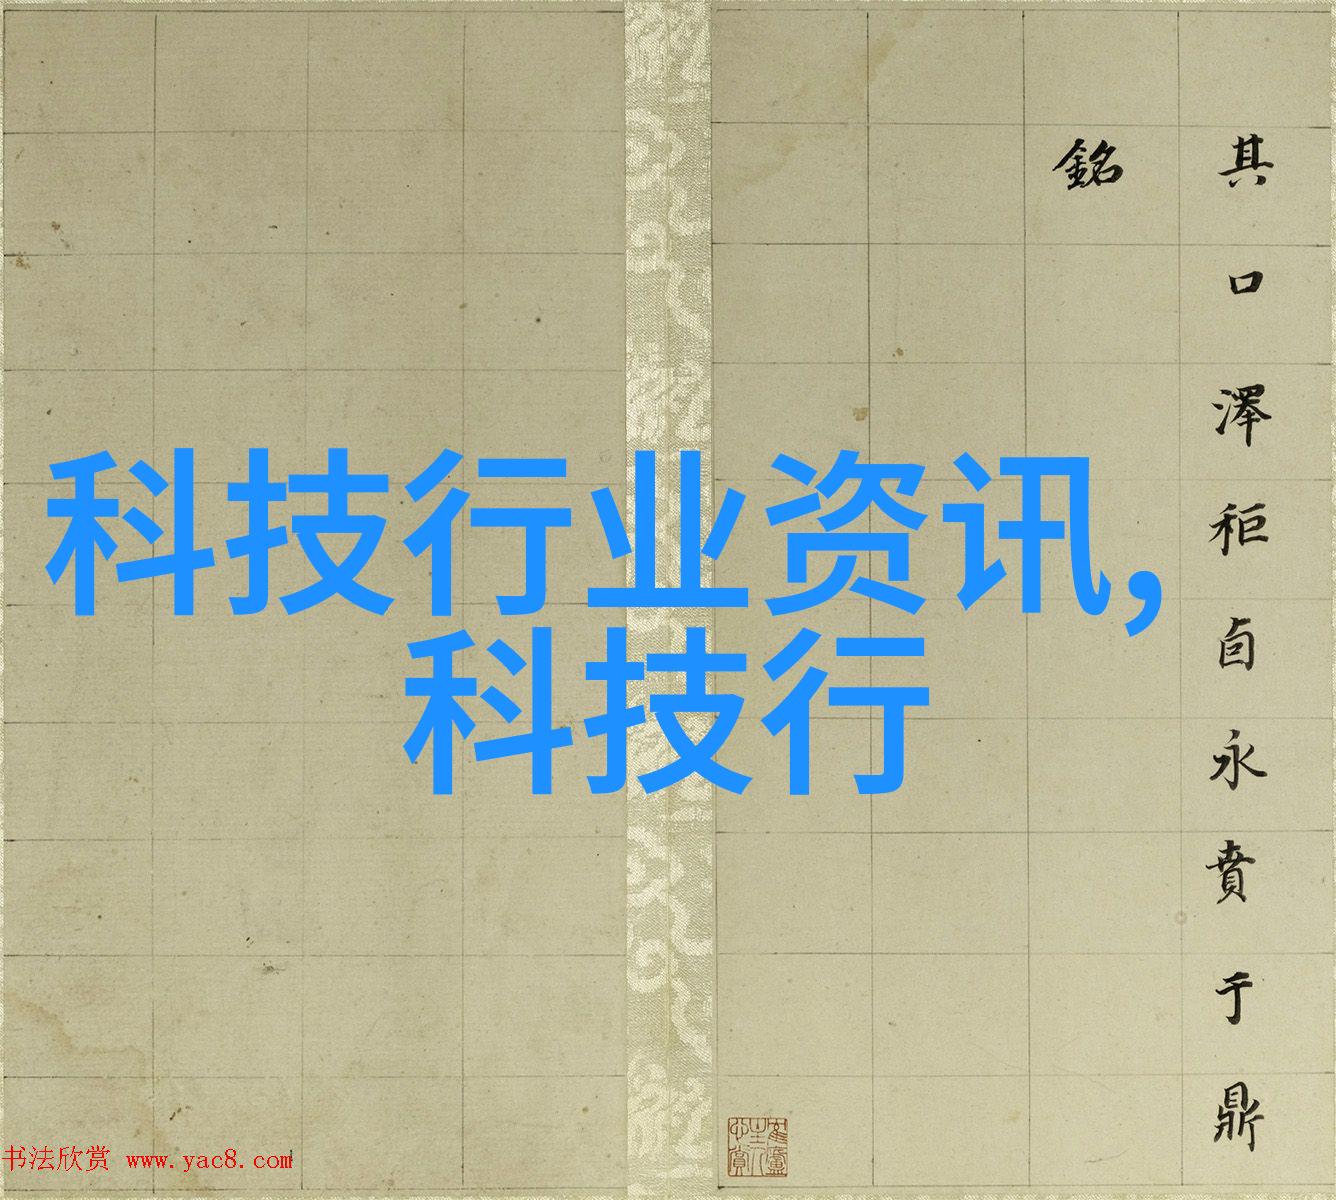 科技行业资讯,
科技行
其口澤秬卣永賁于鼎
銘
书法欣赏 www.yac8.com